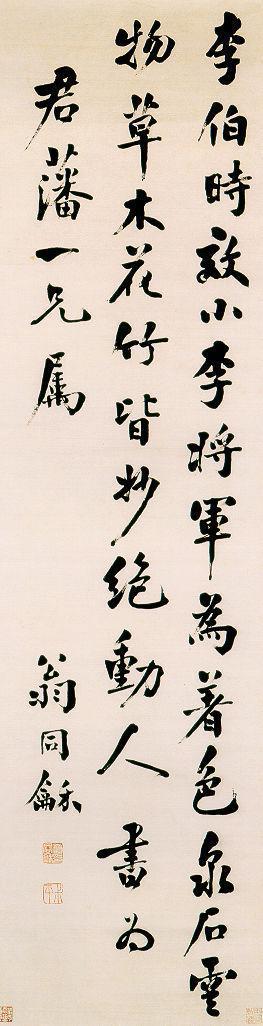 李伯時效小李將軍為著色泉石雲
物草木花竹皆妙絶動人 書為
君藩一兄屬
翁同龢